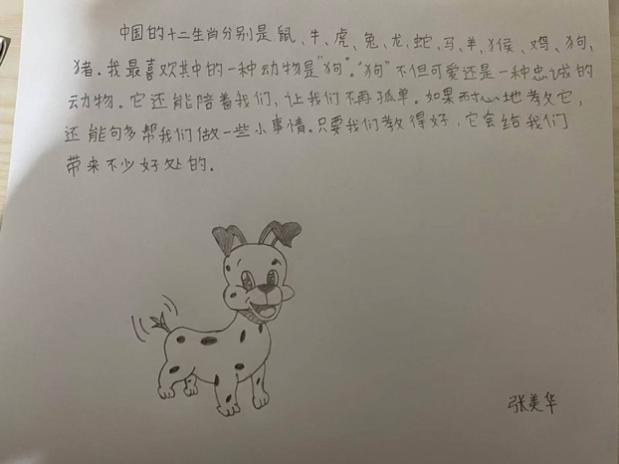 中国的十二生肖分别是鼠、牛、虎、兔、龙、蛇、马、羊、猴、鸡、狗、
猪。我最喜欢其中的一种动物是“狗”。“狗”不但可爱还是一种忠诚的
动物。它还能陪着我们，让我们不再孤单。如果耐心地教它，
还能够多帮我们做一些小事情。只要我们教得好，它会给我们
带来不少好处的。
张美华